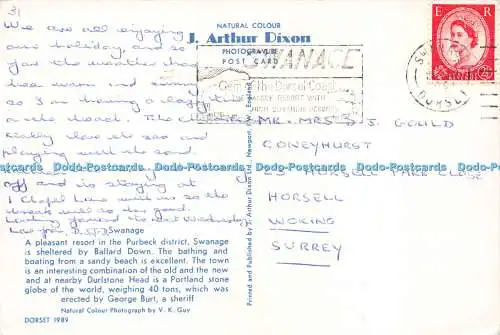 31
We are all enjoying
our holiday, and so
far the weather has
been warm and sunny
as I am having a lazy time
on the beach. The children
really love the sea and
playing with the sand.
off and is staying at
1 Chapel Lane with us so the
break will do her good.
Looking forward to next Wednesday
Love from
NATURAL COLOUR
J. Arthur Dixon
PHOTOGRAVURE
POST CARD
SWANAGE
Gem of The Dorset Coast
E R
DORSET
MR. MRS D. J. GOULD
CONEYHURST
HORSELL PARK CLOSE
HORSELL
WOKING
SURREY
Printed and Published by J. Arthur Dixon Ltd., Newport, I.W., England.
Dodo-Postcards Dodo-Postcards Dodo-Postcards Dodo-Postcards Dodo-Postcards
Swanage
A pleasant resort in the Purbeck district, Swanage
is sheltered by Ballard Down. The bathing and
boating from a sandy beach is excellent. The town
is an interesting combination of the old and the new
and at nearby Durlstone Head is a Portland stone
globe of the world, weighing 40 tons, which was
erected by George Burt, a sheriff
Natural Colour Photograph by V. K. Guy
DORSET 1989